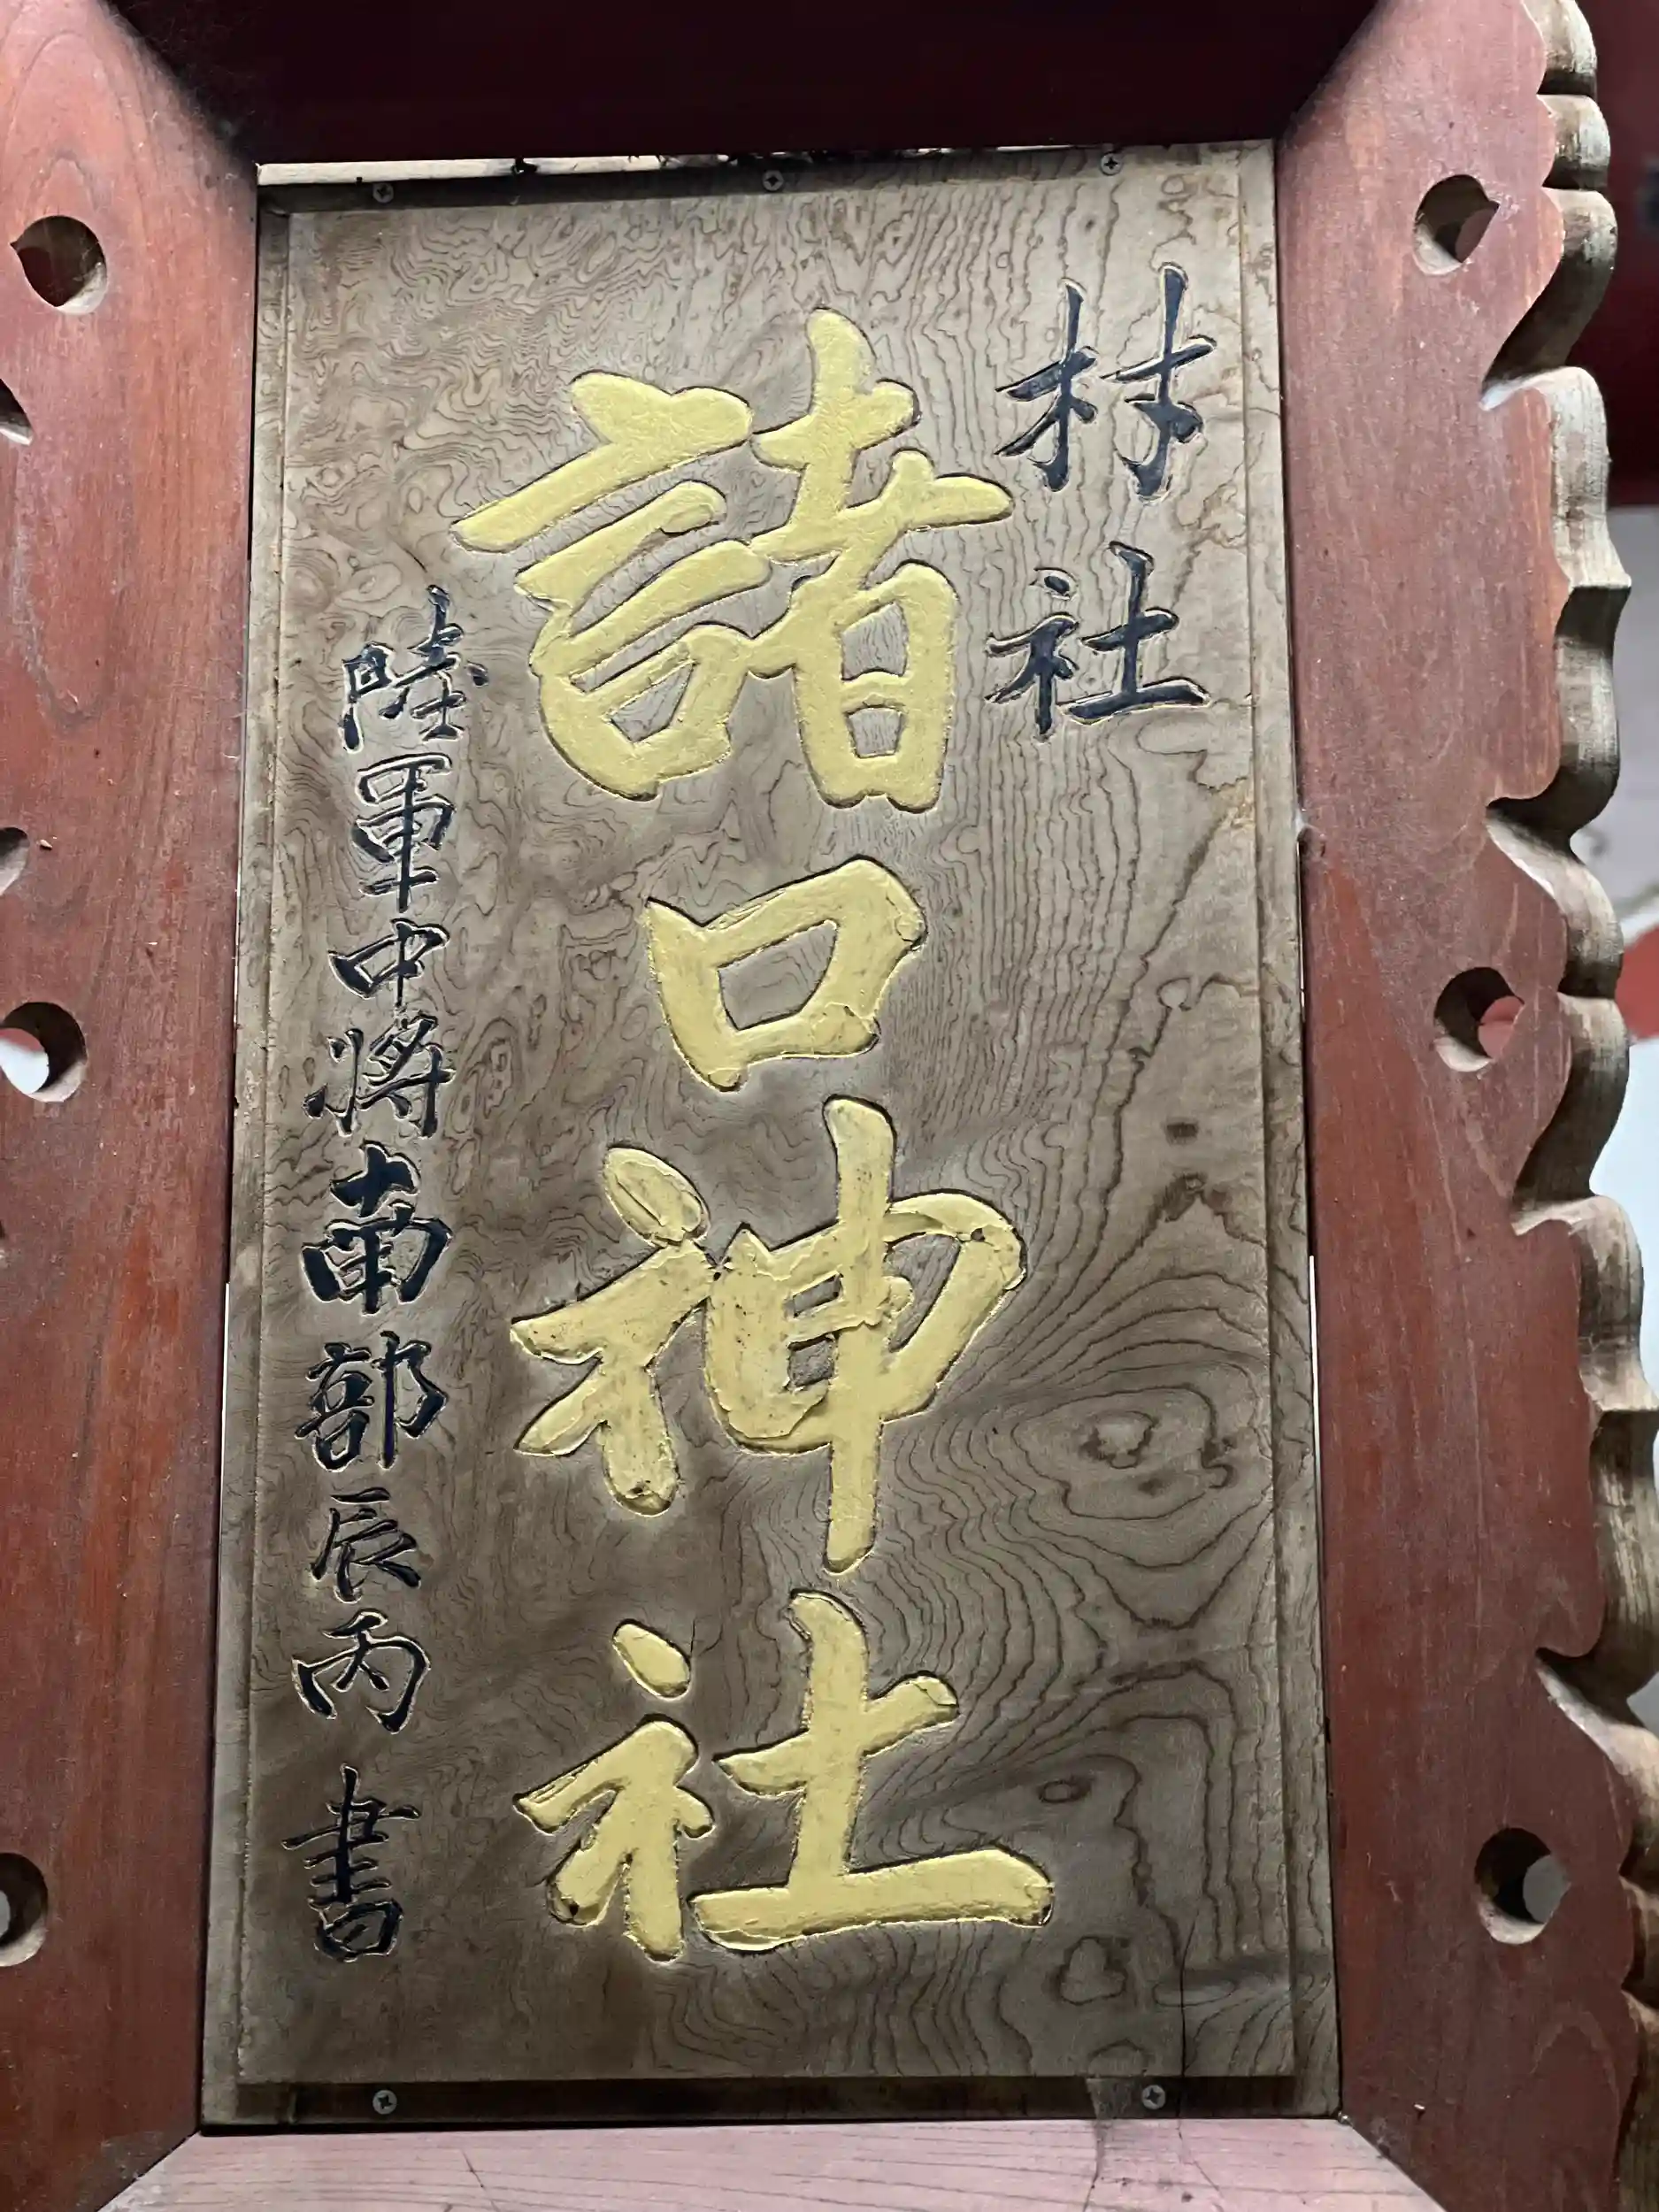 村社
諸口神社
陸軍中将南部辰丙書